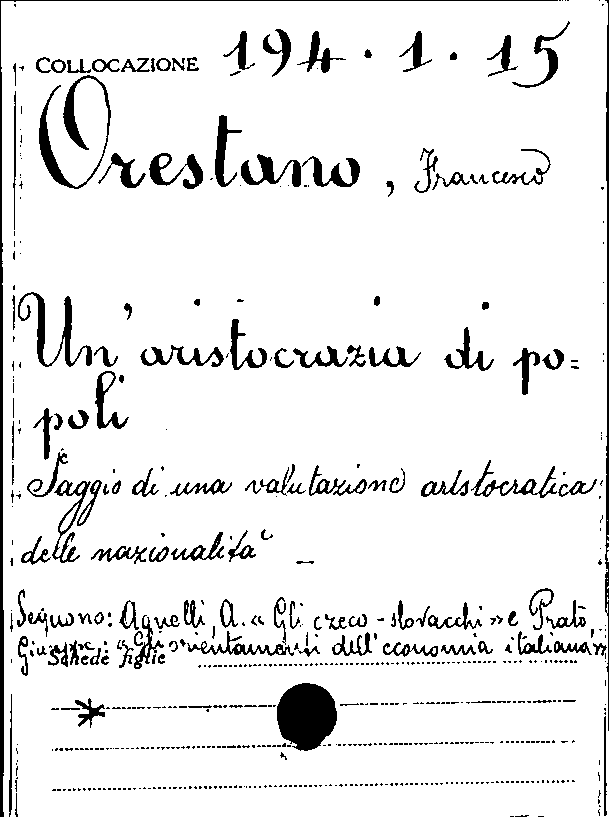 COLLOCAZIONE 194.1.15
Orestano, Francesco
Un'aristocrazia di po=
poli
Saggio di una valutazione aristocratica
delle nazionalità -
Seguono: Agnelli, A. « Gli czeco-slovacchi » e Prato,
Giuseppe: « Gli orientamenti dell'economia italiana »
Schede figlie